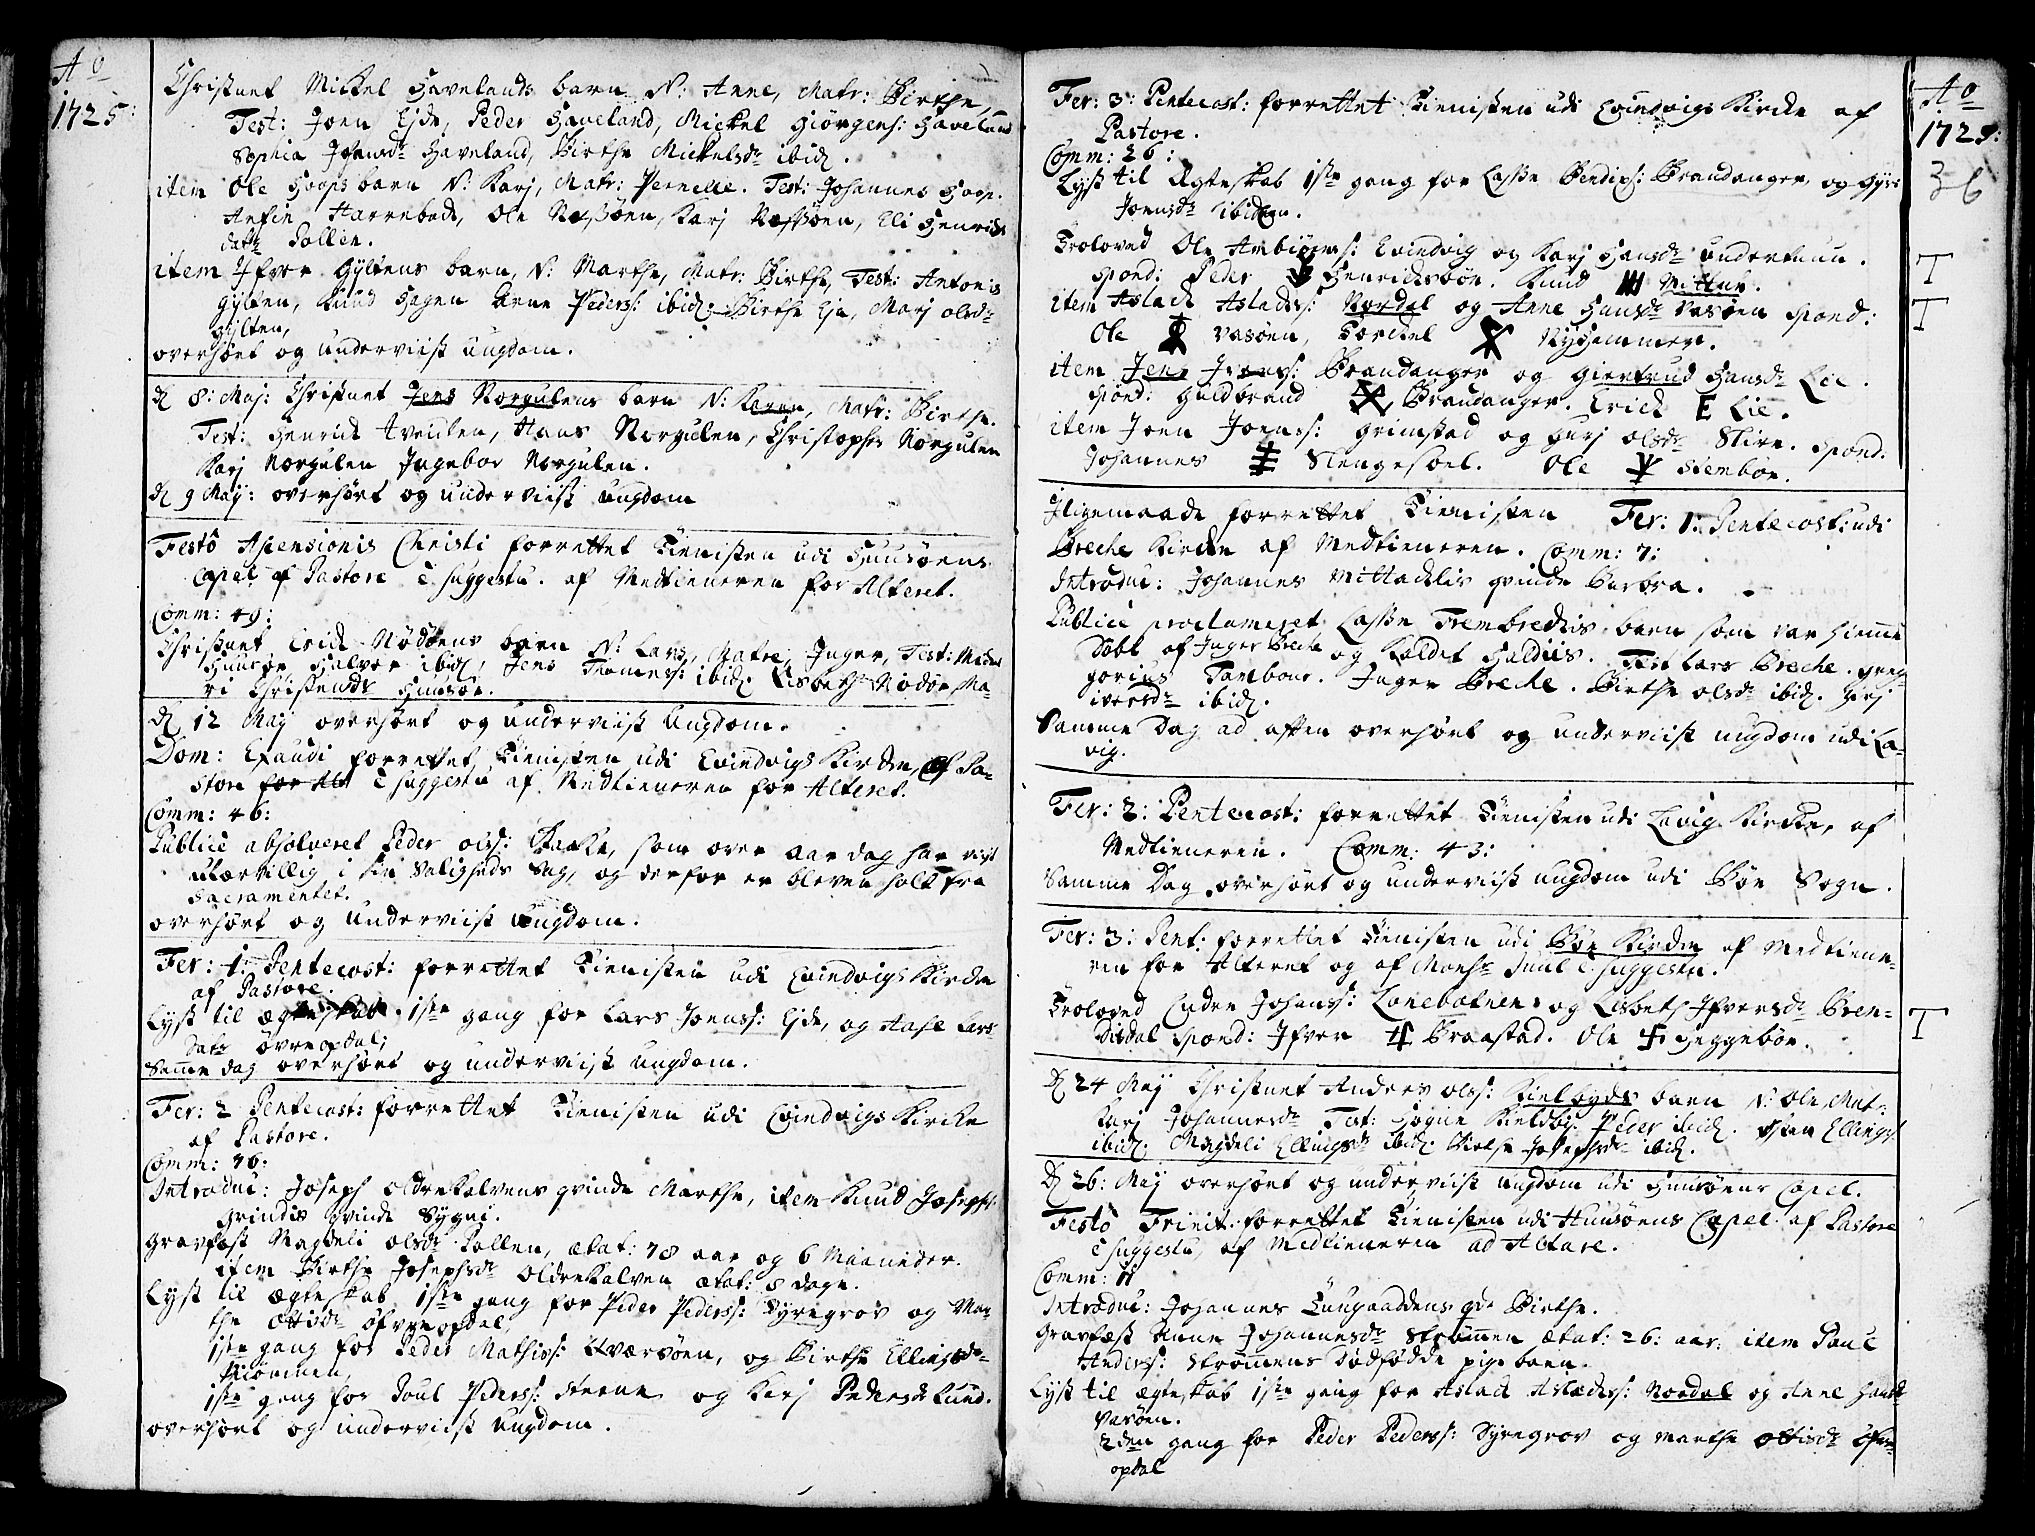 Ao
1725:
Christnet Mickel Havelands barn N: Anne, Matr: Birthe,
Test: Joen Ejde, Peder Haveland, Mickel Giörgens: Haveland
Sophia Johansdr Haveland, Birthe Mickelsdr ibid.
item Ole Hoops barn N: Karj, Matr: Pernelle. Test: Johannes Hoop.
Anfin Harrebade, Ole Næssöen, Karj Næssöen, Eli Henrichs
datr Pollen.
item Ifver Gyltens barn, N: Marthe, Matr: Birthe, Test: Antonis
Gylten, Knud Hagen Arne Peders: ibid: Birthe Eje, Marj olsdr
Gylten,
overhört og underviist Ungdom.
d 8: Maj: Christnet Jens Norgulens barn N: Karen, Matr: Birthe.
Test: Henrich Aveidlen, Hans Norgulen, Christopher Norgulen
Karj Norgulen Ingebor Norgulen.
d 9 Maij: overhört og underviist Ungdom
Festo Asensionis Christi forrettet Tienisten udi Huusöens
Capel af Pastore è suggestu. af Medtieneren for Alteret.
Comm: 49:
Christnet Erich Nödöens barn N: Lars, Matre, Inger, Test: Mickel
Huusöe Halvor ibid, Jens Thomes: ibid. Lisbeth Nödöe, Ma-
ri Christensdr Huusöe.
d 12 Maij overhört og underviist Ungdom.
Dom: Exaudi forrettet Tienisten udi Evindvigs Kirche, af Pa-
store for Alt è suggestu af Medtieneren for Alteret.
Comm: 46:
Publicè absolveret Peder ols: Staake, som over aar dag har viist
ukærvillig i sin Saligheds Sag, og derfor er bleven holt fra
Sacramentet.
overhört og underviist Ungdom.
Fer: 1: Pentecost: forrettet Tienisten udi Evindvigs Kirche
af Pastore.
Lyst til ægteskab 1ste gang for Lars Jonss: Ejde, og Aase Lars
datr övreopdal,
Samme dag overhört og underviist Ungdom.
Fer: 2 Pentecost: forrettet Tienisten udi Evindvigs Kirche
af Pastore.
Comm: 76:
Introduc: Joseph oldrekalvens qvinde Marthe, item Knud Josephs:
Grindis qvinde Sygni.
Gravfæst Magdeli olsdr Pollen, ætat: 78 aar og 6 Maaneder.
item Birthe Josephsdr Oldrekalven ætat: 8 dage.
Lyst til ægteskab 1ste gang for Peder Peders: Syregrov og Mar-
the Ottisdr öfvreopdal,
1ste gang for Peder Mathiss: Kværöen, og Birthe Ellingsdr
Miömmen,
1ste gang for Poul Peders: Steene og Karj Pedersdr Lund.
overhört og underviist Ungdom.
Fer: 3: Pentecost: forrettet Tienisten udi Evindvigs Kirche af
Pastore.
Comm: 26:
Lyst til Ægteskab 1ste gang for Lasse Bendixs: Brandanger og Gyri
Joensdr ibidem.
Troloved Ole Ambiörns: Evindvig og Karj Hansdr Undertuun.
Spond: Peder Henrichsböe. Knud Mittun.
item Aslach Aslachs: Nordal og Anne Hansdr Vasöen Spond:
Ole Vasöen, Torchel Nyhammere.
item Jens Jens: Brandanger og Giertrud Hansdr Lie.
Spond: Guldbrand Brandanger. Erich E Lie.
item Joen Joens: Grimstad og Gurj olsdr Stire. Spond.
Johannes Slengesoel. Ole Stemböe.
Iligemaade forrettet Tienisten Fer: 1: Pentecost: udi
Breche Kirche af Medtieneren. Comm: 7:
Introduc: Johannes Mittachlis qvinde Barbra.
Publicè proclameret Lasse Trembrechis barn som var hiemme
döbt af Inger Breche og Kaldet Haldis. Test Lars Breche. Greg-
gorius Tambour. Inger Breche. Birthe olsdr ibid. Gurj
iversdr ibid.
Samme Dag ad aften overhört og underviist ungdom udi La-
vig.
Fer: 2: Pentecost: forrettet Tienisten udi Lavig Kirche, af
Medtieneren. Comm: 43:
Samme Dag overhört og underviist ungdom udi Böe Sogn.
Fer: 3: Pent: forrettet Tienisten udi Böe Kirche af Medtiene-
ren for Alteret og af Monsr Juul è suggestu.
Troloved Endre Johans: Lonebotnen og Lisbeth Ifversdr Bren-
disdal Spond: Ifver Braastad. Ole Heggeböe.
d 24 Maij Christnet Anders ols: Kielbyds barn N: Ole Mat:
Karj Johannesdr Test: Hogne Kieldby. Peder ibid. Sten Ellings:
ibid. Magdeli Ellingsdr ibid: Birthe Josephsdr ibid.
d 26: Maij overhört og underviist ungdom udi Huusöens Capel.
Festo Trinit: forrettet Tienisten udi Huusöens Capel af Pastore
è suggestu, af Medtieneren ad Altare.
Comm: 11
Introduc: Johannes Tungaaddens qde Birthe.
Gravfæst Anne Johannesdr Strömmen ætat: 26: aar, item Paul
Anders: Strömmens dödfödde pige barn.
Lyst til ægteskab 1ste gang for Aslach Aslachs: Nordal og Anne Hansdr
Vasöen.
2den gang for Peder Peders: Syregrov og Marthe Ottisdr Öfvre-
opdal
Ao
1725:
36
T
T
T